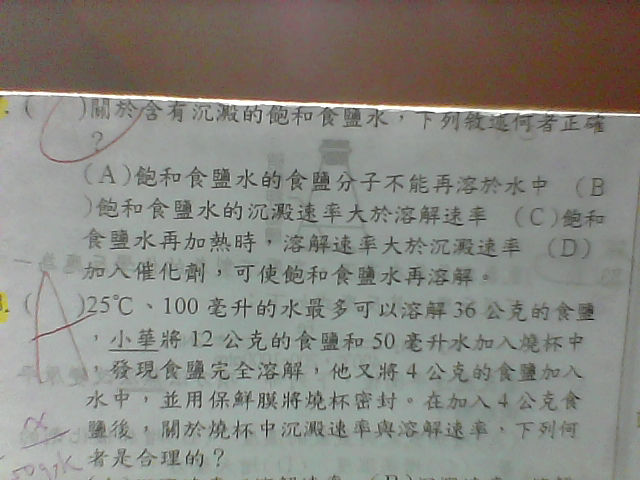 . ( )關於含有沉澱的飽和食鹽水，下列敘述何者正確
？
(A)飽和食鹽水的食鹽分子不能再溶於水中 (B
)飽和食鹽水的沉澱速率大於溶解速率 (C)飽和
食鹽水再加熱時，溶解速率大於沉澱速率 (D)
加入催化劑，可使飽和食鹽水再溶解。
3. (A)25℃、100 毫升的水最多可以溶解 36 公克的食鹽
，小華將 12 公克的食鹽和 50 毫升水加入燒杯中
，發現食鹽完全溶解，他又將 4 公克的食鹽加入
水中，並用保鮮膜將燒杯密封。在加入 4 公克食
鹽後，關於燒杯中沉澱速率與溶解速率，下列何
者是合理的？